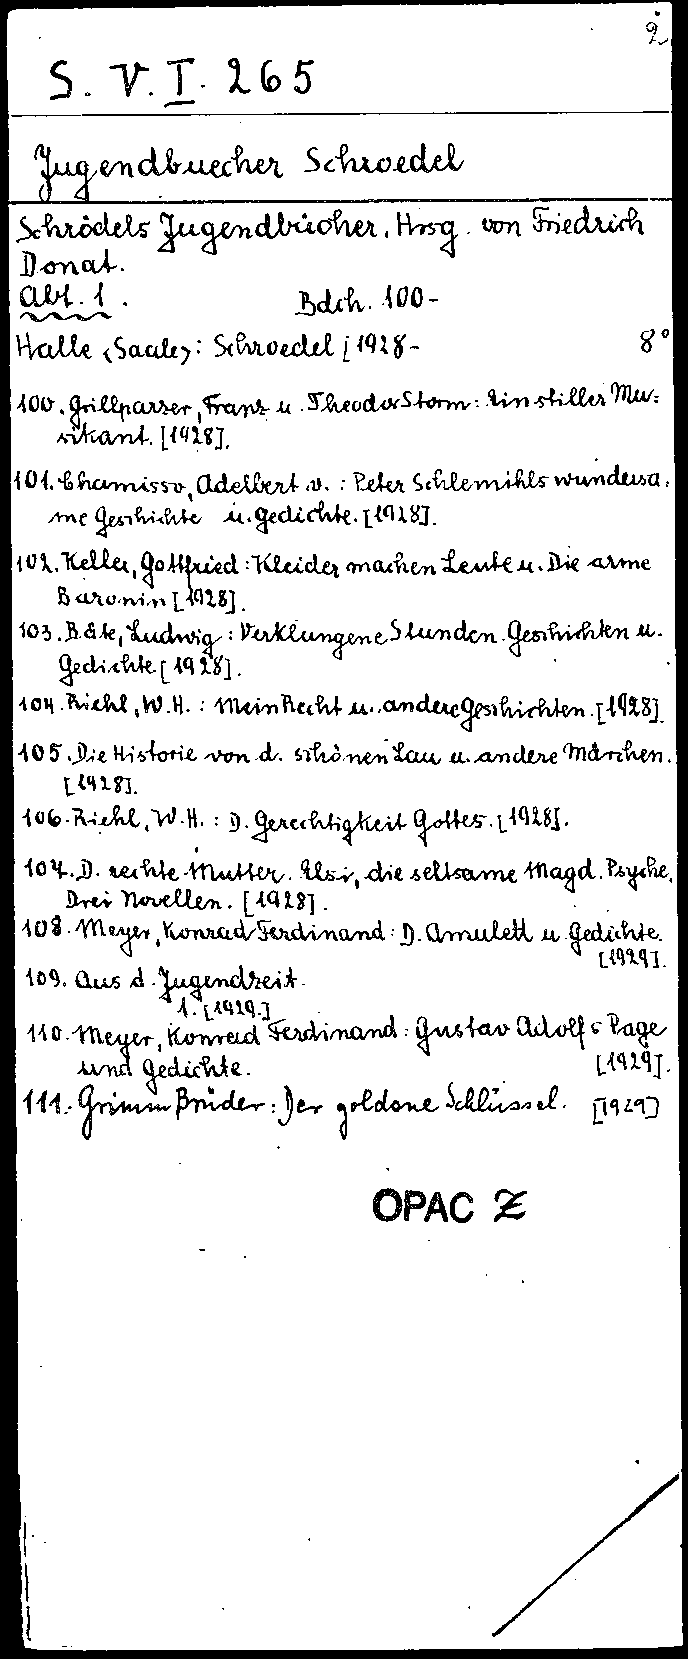 2
S. V. I. 265
Jugendbuecher Schroedel
Schrödels Jugendbücher. Hrsg. von Friedrich
Donat.
Abt. 1. Bdch. 100-
Halle <Saale>: Schroedel [1928- 8°
100. Grillparzer, Franz u. Theodor Storm: Ein stiller Mu-
sikant. [1928].
101. Chamisso, Adelbert v.: Peter Schlemihls wundersa-
me Geschichte u. Gedichte. [1928].
102. Keller, Gottfried: Kleider machen Leute u. Die arme
Baronin [1928].
103. Bäte, Ludwig: Verklungene Stunden. Geschichten u.
Gedichte [1928].
104. Riehl, W. H.: Mein Recht u. andere Geschichten. [1928].
105. Die Historie von d. schönen Lau u. andere Märchen.
[1928].
106. Riehl, W. H.: D. Gerechtigkeit Gottes. [1928].
107. D. rechte Mutter. Elsi, die seltsame Magd. Psyche.
Drei Novellen. [1928].
108. Meyer, Konrad Ferdinand: D. Amulett u. Gedichte.
[1929].
109. Aus d. Jugendzeit.
1. [1929.]
110. Meyer, Konrad Ferdinand: Gustav Adolfs Page
und Gedichte. [1929].
111. Grimm Brüder: Der goldene Schlüssel. [1929]
OPAC Z